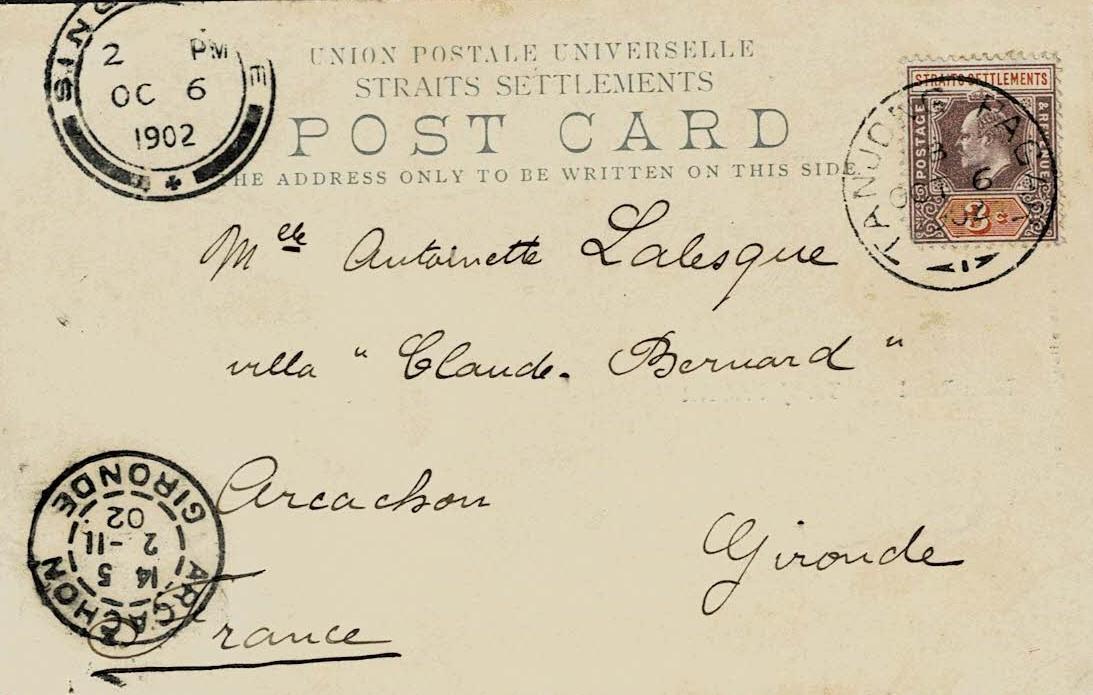 UNION POSTALE UNIVERSELLE
STRAITS SETTLEMENTS
POST CARD
THE ADDRESS ONLY TO BE WRITTEN ON THIS SIDE
SINGAPORE
2 PM
OC 6
1902
STRAITS SETTLEMENTS
POSTAGE & REVENUE
3 c.
TANJONG PAGAR
OCT 6
Mlle Antoinette Lalesque
villa "Claude-Bernard"
Arcachon
Gironde
France
ARCACHON
14 5
2 -11
02
GIRONDE